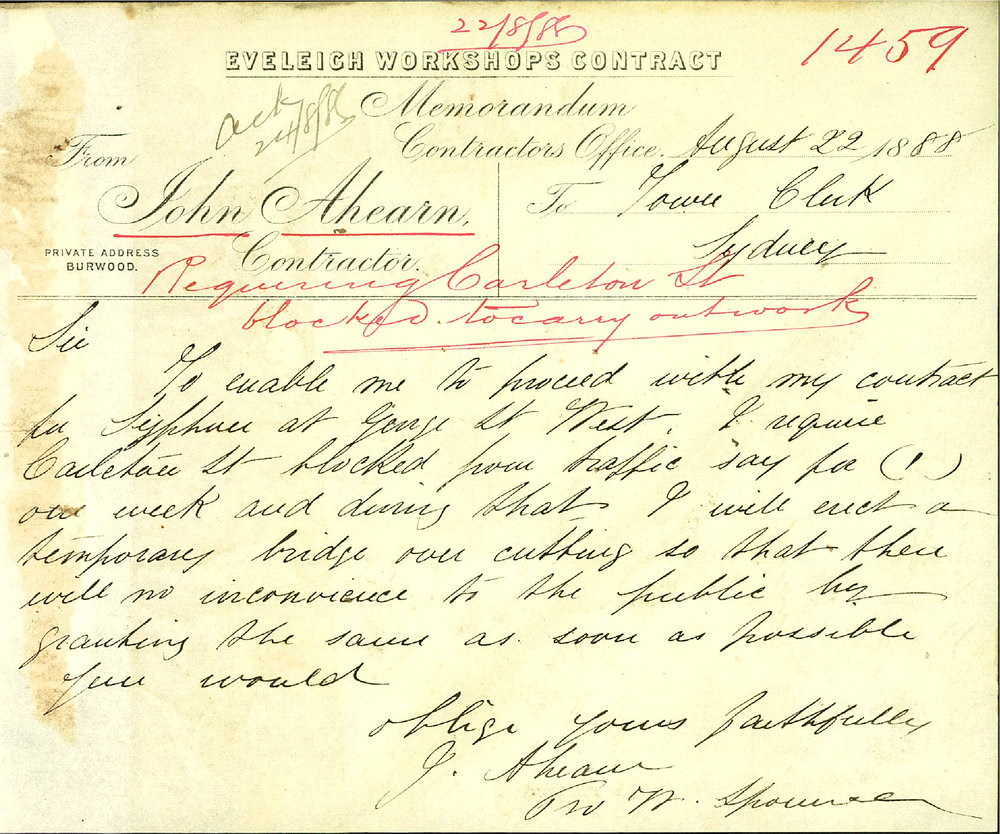 22/8/88
1459
EVELEIGH WORKSHOPS CONTRACT
Memorandum
ack
24/8/88
Contractors Office. August 22 1888
From
John Ahearn,
To Town Clerk
Sydney
PRIVATE ADDRESS
BURWOOD.
Contractor.
Requiring Carleton St
blocked to carry out work
Sir
To enable me to proceed with my contract
for Syphon at George St West. I require
Carleton St blocked from traffic say for (1)
one week and during that I will erect a
temporary bridge over cutting so that there
will no inconvience to the public by
granting the same as soon as possible
you would
oblige yours faithfully
J. Ahearn
Pro W.